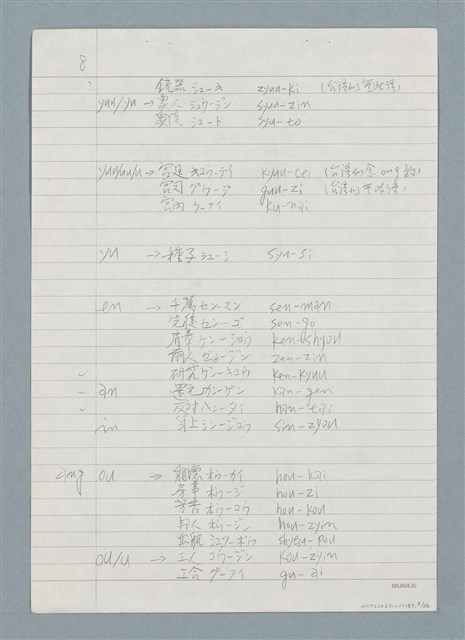 8
銃器 ジューキ zyuu-ki (台湾的無此語)
yuu/yu → 衆人 シュウージン syuu-zin
衆徒 シュート syu-to
yuu/uu/u → 宮廷 キュウーテイ kyuu-tei (台湾的金ong韵)
宮司 グウージ guu-zi (台湾的無此語)
宮内 クーナイ ku-nai
yu → 種子 シューシ syu-si
en → 千萬 センーマン sen-man
先後 センーゴ sen-go
肩章 ケンーショウ ken-shyou
前人 ゼンージン zen-zin
研究 ケンーキュウ ken-kyuu
an 還元 カンーゲン kan-gen
反対 ハンータイ han-tai
in 身上 シンージョウ sin-zyou
ang ou → 崩壊 ホウーカイ hou-kai
房事 ホウージ hou-zi
芳香 ホウーコウ hou-kou
邦人 ホウージン hou-zyin
出航 シュツーポウ shytsu-pou
ou/u → 工人 コウージン kou-zyin
工合 グーアイ gu-ai
BUGLE